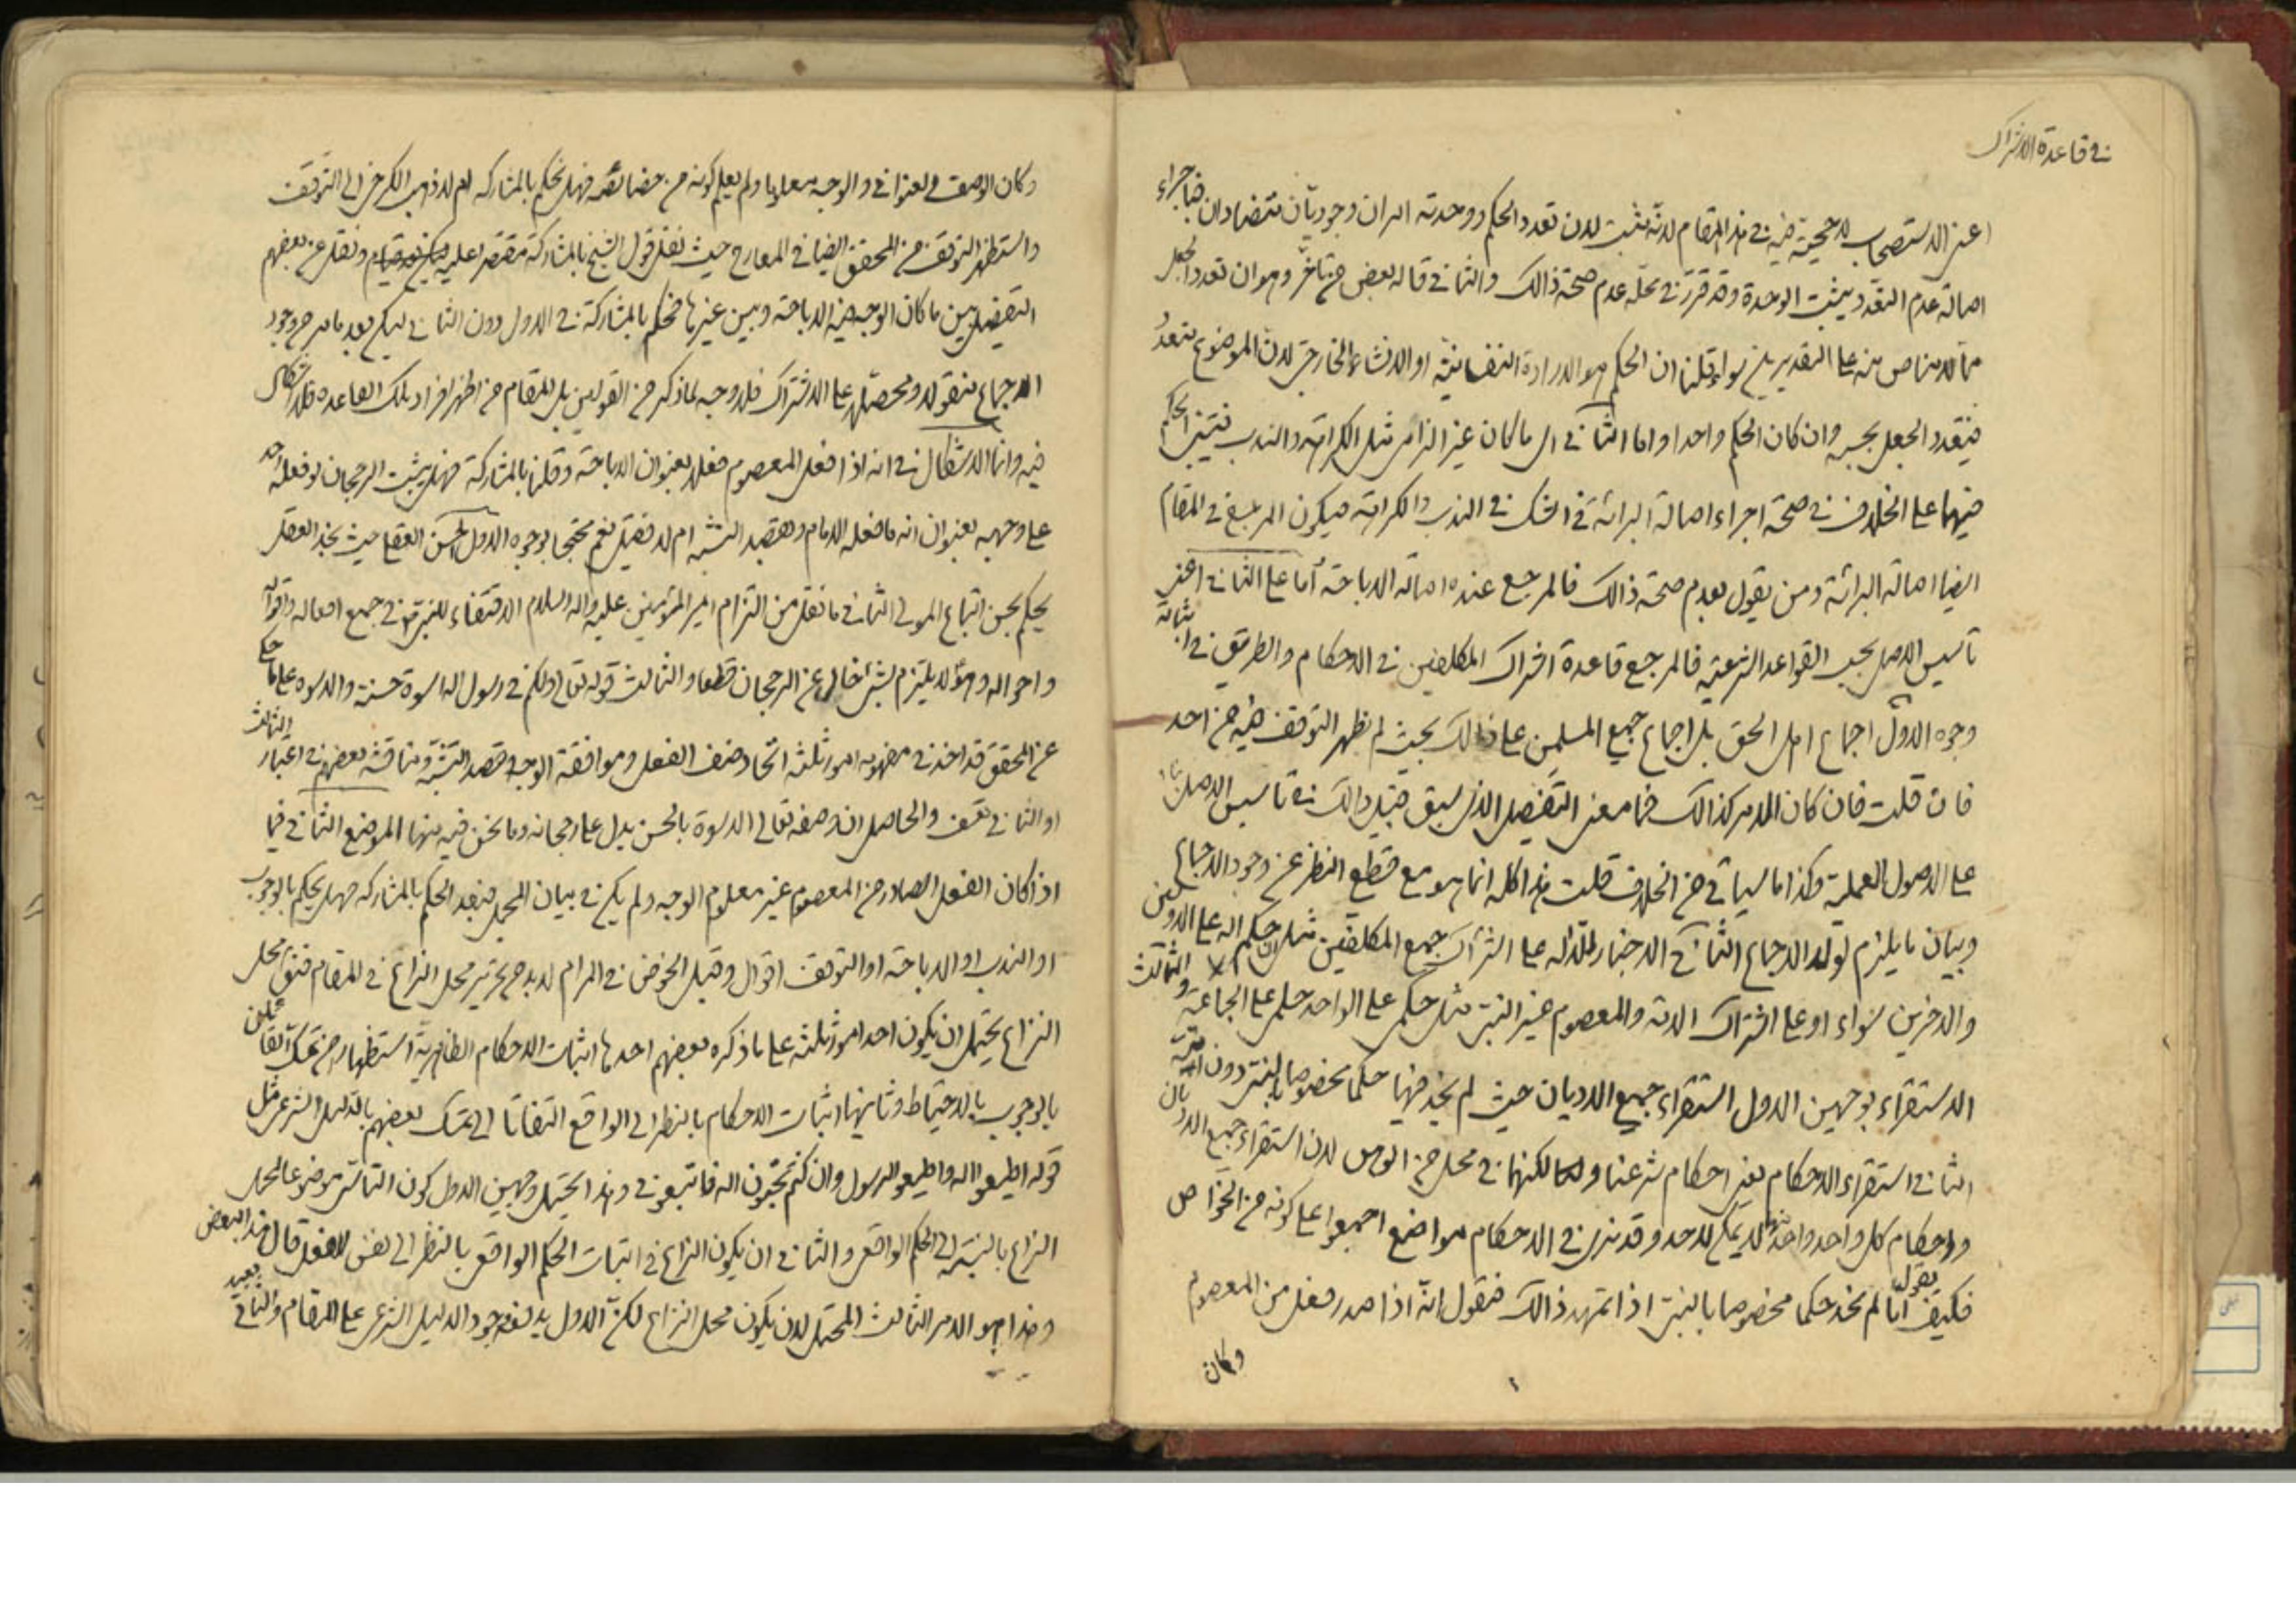 في قاعدة الاشتراك
اعني الاستصحاب لا حجية فيه في هذا المقام لانه يثبت لان تعدد الحكم ووحدته امران وجوديان متضادان فاجراء
اصالة عدم التعدد يثبت الوحدة وقد قرر في محله عدم صحة ذالك والثاني قاله بعض من تأخر وهو ان تعدد الجعل
مما لا مناص منه على التقديرين سواء قلنا ان الحكم هو الارادة النفسانية او الانشاء الخارجي لان الموضوع متعدد
فيتعدد الجعل بحسبه وان كان الحكم واحدا واما الثاني اي ما كان غير الزامي مثل الكراهة والندب فيبتني الحكم
فيهما على الخلاف في صحة اجراء اصالة البرائة في الشك في الندب والكراهة فيكون المرجع في المقام
ايضا اصالة البرائة ومن يقول بعدم صحة ذالك فالمرجع عنده اصالة الاباحة أما على الثاني اعني
تأسيس الاصل بحسب القواعد الشرعية فالمرجع قاعدة اشتراك المكلفين في الاحكام والطريق في اثباته
وجوه الاول اجماع اهل الحق بل اجماع جميع المسلمين على ذالك بحيث لم يظهر التوقف فيه من احد
فان قلت فان كان الامر كذالك فما معنى التفصيل الذي سبق قبيل ذالك في تأسيس الاصل
على الاصول العملية وكذا ما سيأتي من الخلاف قلت هذا كله انما هو مع قطع النظر عن وجود الاجماع
وبيان ما يلزم لولا الاجماع الثاني الاخبار الدالة على اشتراك جميع المكلفين مثل ان حكم الله على الاولين
والاخرين سواء او على اشتراك الامة والمعصوم غير النبي مثل حكمي على الواحد حكمي على الجماعة والثالث
الاستقراء بوجهين الاول استقراء جميع الاديان حيث لم يخد فيها حكما مخصوصا بالنبي دون امته
الثاني استقراء الاحكام يعني احكام شرعنا ولكنهما في محل من الوهن لان استقراء جميع الاديان
واحكام كل واحد واحد منها لا يمكن لاحد وقد نرى في الاحكام مواضع اجمعوا على كونه من الخواص
فكيف يقول انا لم نخد حكما مخصوصا بالنبي اذا تمهد ذالك فنقول انه اذا صدر فعل من المعصوم
وكان
وكان الوصف العنواني والوجه معلوما ولم يعلم كونه من خصائصه فهل يحكم بالمشاركة ام لا ذهب الكرخي الى التوقف
واستظهر التوقف من المحقق ايضا في المعارج حيث نقل قول الشيخ بالمشاركة مقتصرا عليه ونقل عن بعضهم
التفصيل بين ما كان الوجه فيه الاباحة وبين غيرها فحكم بالمشاركة في الاول دون الثاني لكن بعد ما مر من وجود
الاجماع منقولا ومحصلا على الاشتراك فلا وجه لما ذكر من القولين بل المقام من اظهر افراد تلك القاعدة فلا اشكال
فيه وانما الاشكال في انه اذا فعل المعصوم فعلا بعنوان الاباحة وقلنا بالمشاركة فهل يثبت الرجحان لو فعله احد
على وجهه بعنوان انه ما فعله الامام وبقصد التشبه ام لا فقيل نعم محتجا بوجوه الاول حسن العقل حيث نجد العقل
يحكم بحسن اتباع المولى الثاني ما نقل من التزام امير المؤمنين عليه واله السلام الاقتفاء للنبي في جميع افعاله واقواله
واحواله وهو لا يلتزم بشيء خال عن الرجحان قطعا والثالث قوله تعالى ولكم في رسول الله اسوة حسنة والاسوة على ما حكي
عن المحقق قد اخذ في مفهومه امور ثلثة اتحاد صنف الفعل وموافقة الوجه وقصد التشبه ومناقشة بعضهم في اعتبار الثالث
او الثاني تعسف والحاصل ان وصفه تعالى الاسوة بالحسن يدل على رجحانه وما نحن فيه منها الموضع الثاني فيما
اذا كان الفعل الصادر من المعصوم غير معلوم الوجه ولم يكن في بيان المجمل فبعد الحكم بالمشاركة فهل يحكم بالوجوب
او الندب او الاباحة او التوقف اقوال وقبل الخوض في المرام لا بد من تحرير محل النزاع في المقام فنقول محل
النزاع يحتمل ان يكون احد امور ثلثة على ما ذكره بعضهم احدها اثبات الاحكام الظاهرية استظهارا من تمسك القائلين
بالوجوب بالاحتياط وثانيها اثبات الاحكام بالنظر الى الواقع التفاتا الى تمسك بعضهم بالدليل الشرعي مثل
قوله اطيعوا الله واطيعوا الرسول وان كنتم تحبون الله فاتبعوني وهذا يحتمل وجهين الاول كون التأسي موضوعا لمحل
النزاع بالنسبة الى الحكم الواقعي والثاني ان يكون النزاع في اثبات الحكم الواقعي بالنظر الى نفس الفعل قال هذا البعض
وهذا هو الامر الثالث المحتمل لان يكون محل النزاع لكن الاول يدفعه وجود الدليل الشرعي على المقام والثاني بعيد